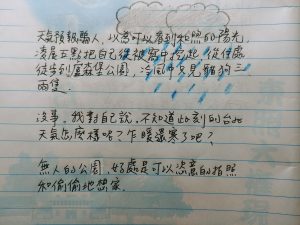 天氣預報騙人，以為可以看到和煦的陽光，
凌晨五點把自己從被窩中挖起，從住處
徒步到盧森堡公園，冷風中又見貓狗三
兩隻。
沒事，我對自己說，不知道此刻的台北
天氣怎麼樣啦？乍暖還寒了吧？
無人的公園，好處是可以恣意的拍照
和偷偷地想家。